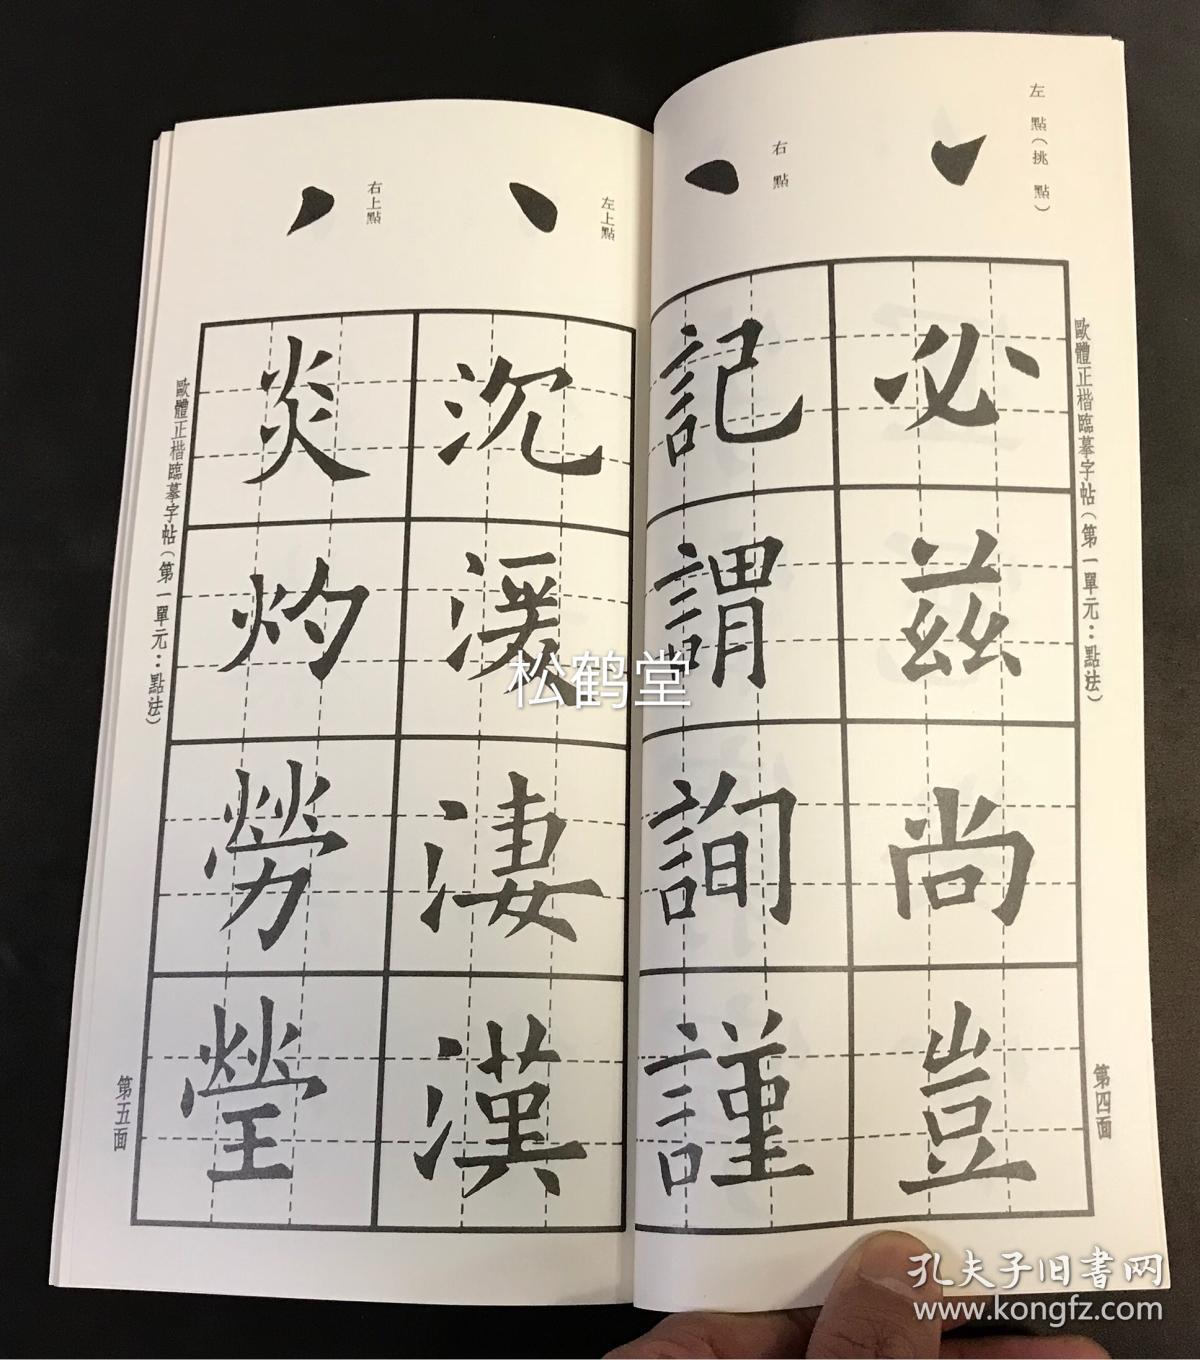 左點（挑點）
右點
歐體正楷臨摹字帖（第一單元：點法）
必茲尚豈
記謂詢謹
第四面
左上點
右上點
沉湲淒漢
炎灼勞瑩
歐體正楷臨摹字帖（第一單元：點法）
第五面
松鹤堂
孔夫子旧書网
www.kongfz.com